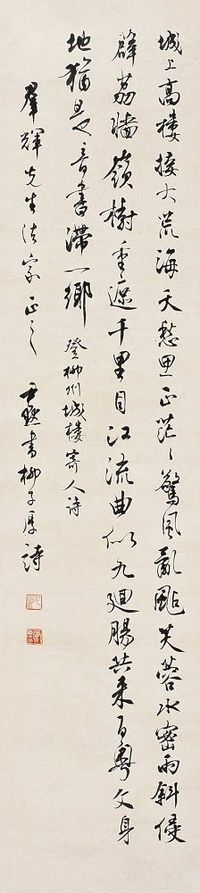 城上高樓接大荒海天愁思正茫〻驚風亂颭芙蓉水密雨斜侵
薜荔牆嶺樹重遮千里目江流曲似九迴腸共來百粵文身
地猶是音書滯一鄉 登柳州城樓寄人詩
羣輝先生法家正之 尹默書柳子厚詩